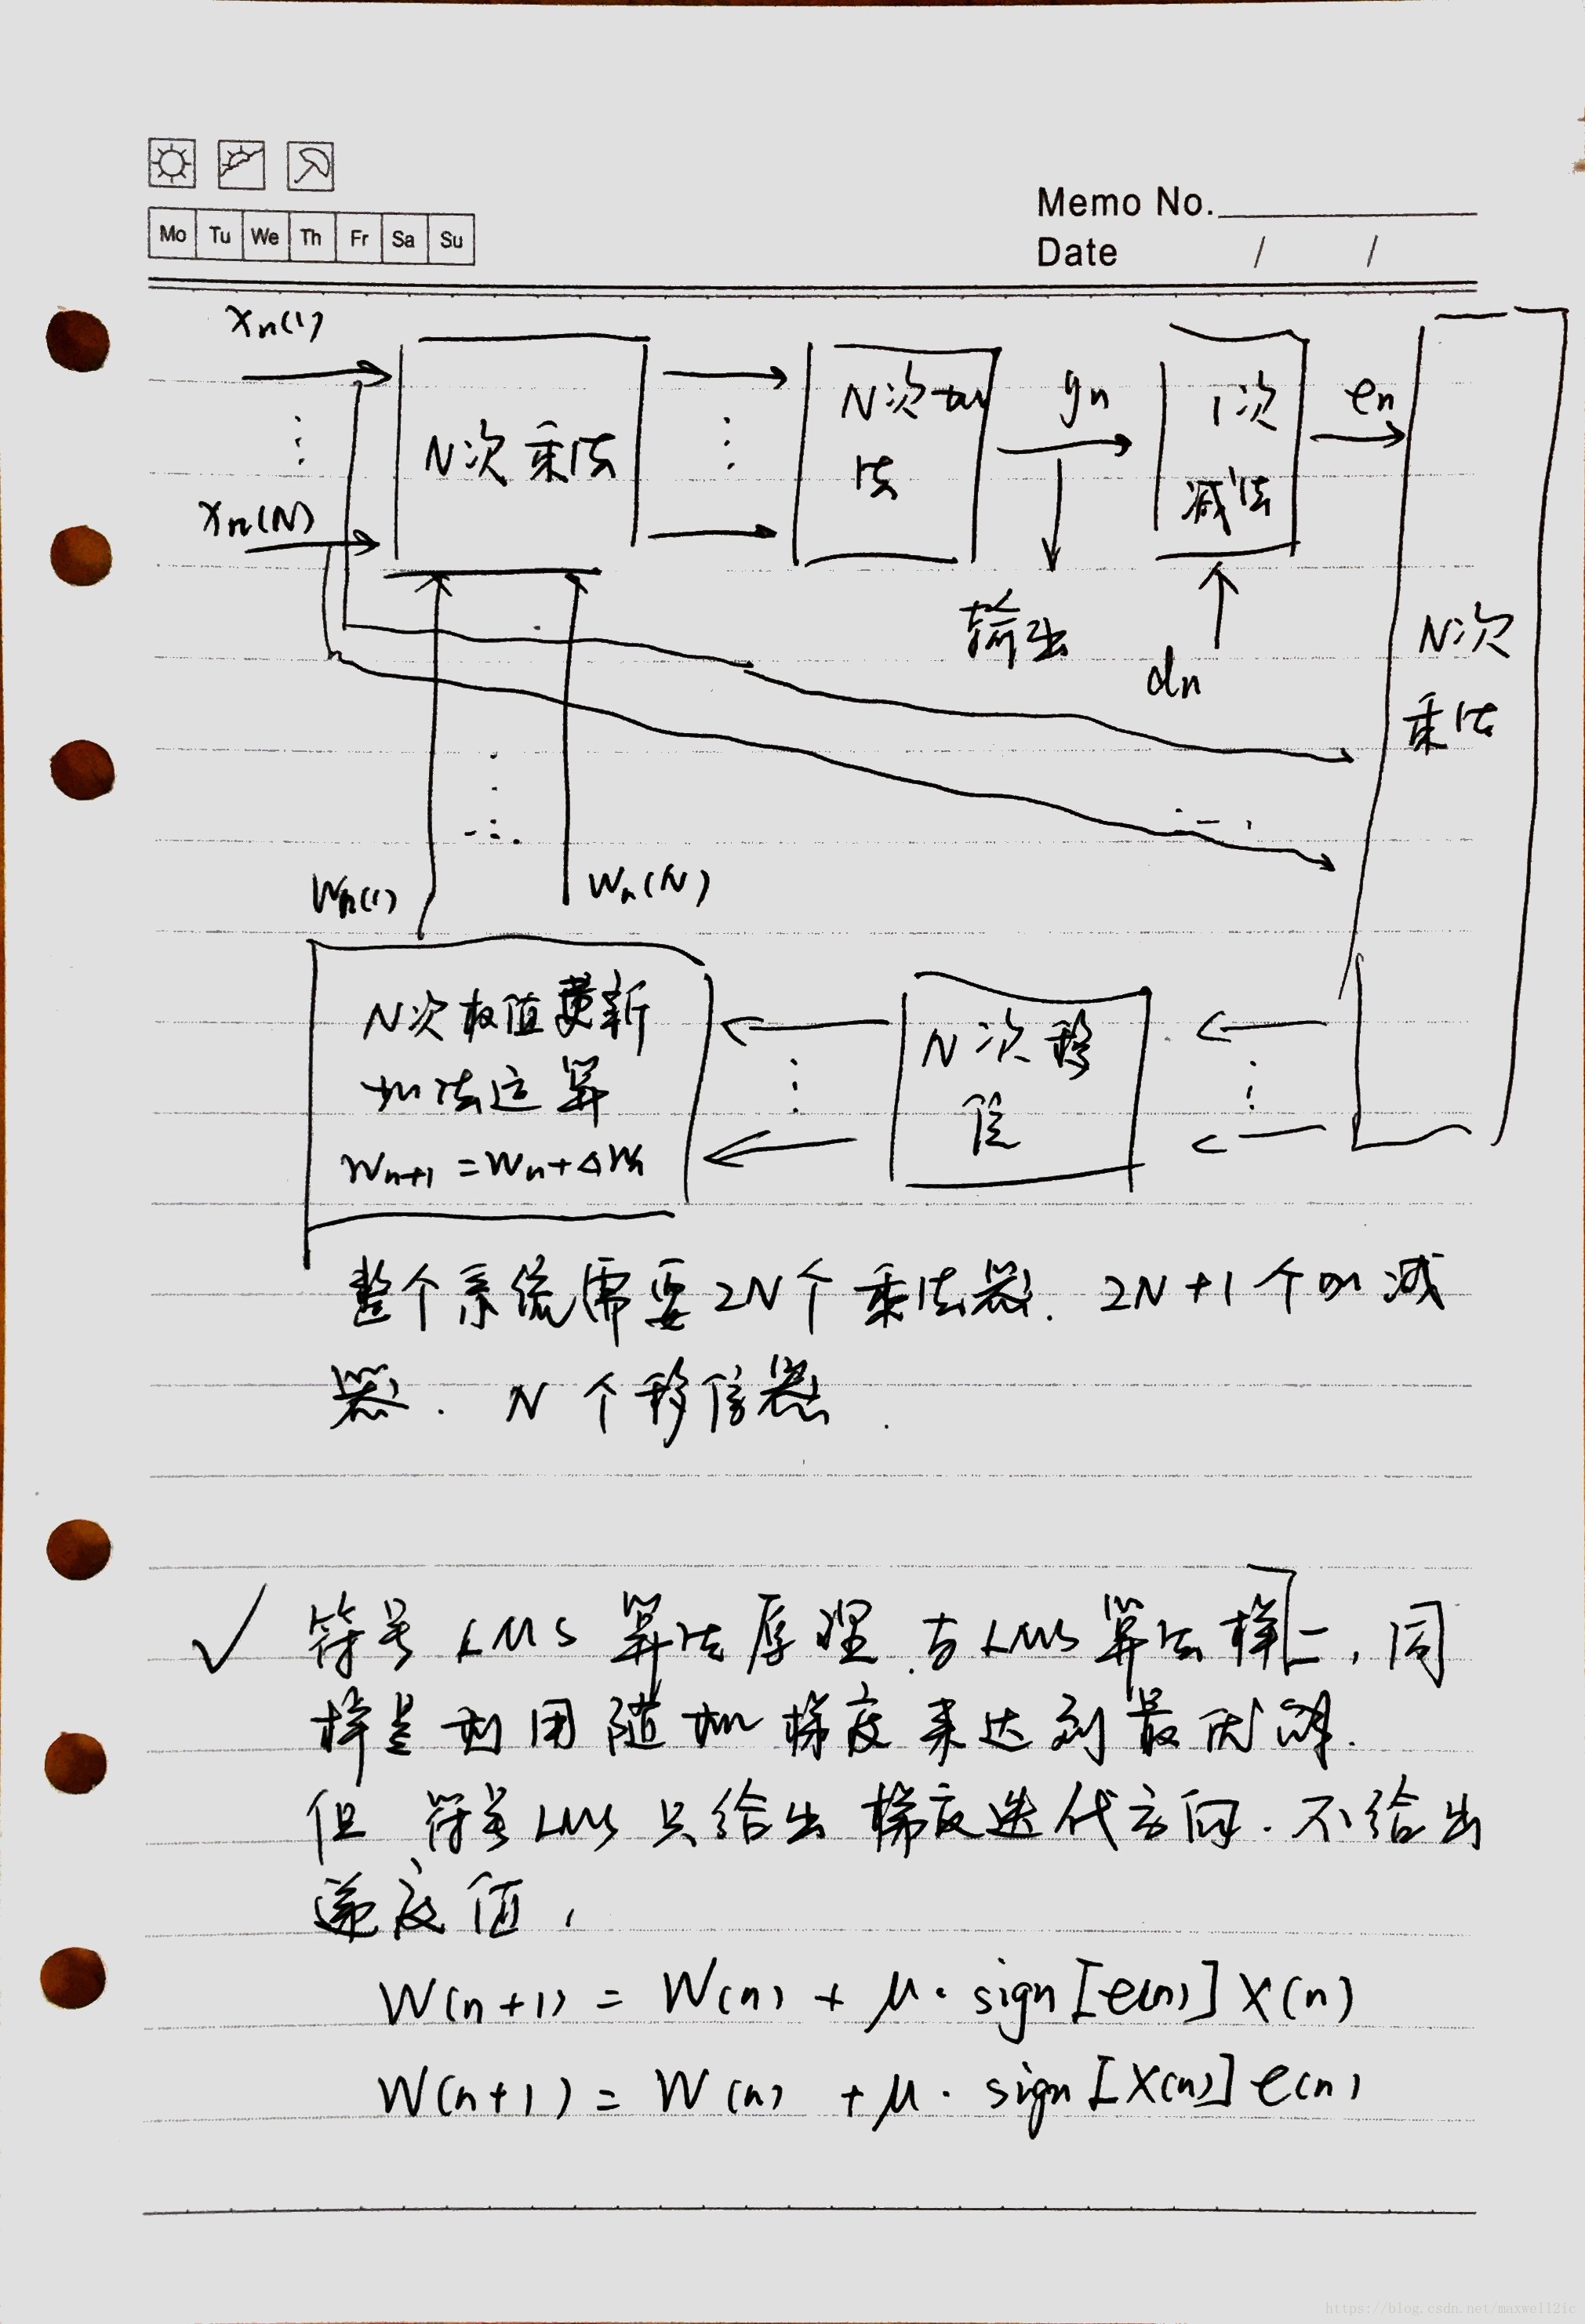 Mo Tu We Th Fr Sa Su
Memo No.
Date / /
xn(1)
xn(N)
N次乘法
N次加
法
yn
输出
1次
减法
dn
en
N次
乘法
Wn(1)
Wn(N)
N次权值更新
加法运算
Wn+1 = Wn + ΔWn
N次移
位
整个系统需要2N个乘法器. 2N+1个加减
器. N个移位器.
✓ 符号LMS算法原理与LMS算法样, 同
样是利用随机梯度来达到最优解.
但符号LMS只给出梯度迭代方向. 不给出
递度值,
W(n+1) = W(n) + μ· sign[e(n)] X(n)
W(n+1) = W(n) + μ· sign[X(n)] e(n)
https://blog.csdn.net/maxwell2ic